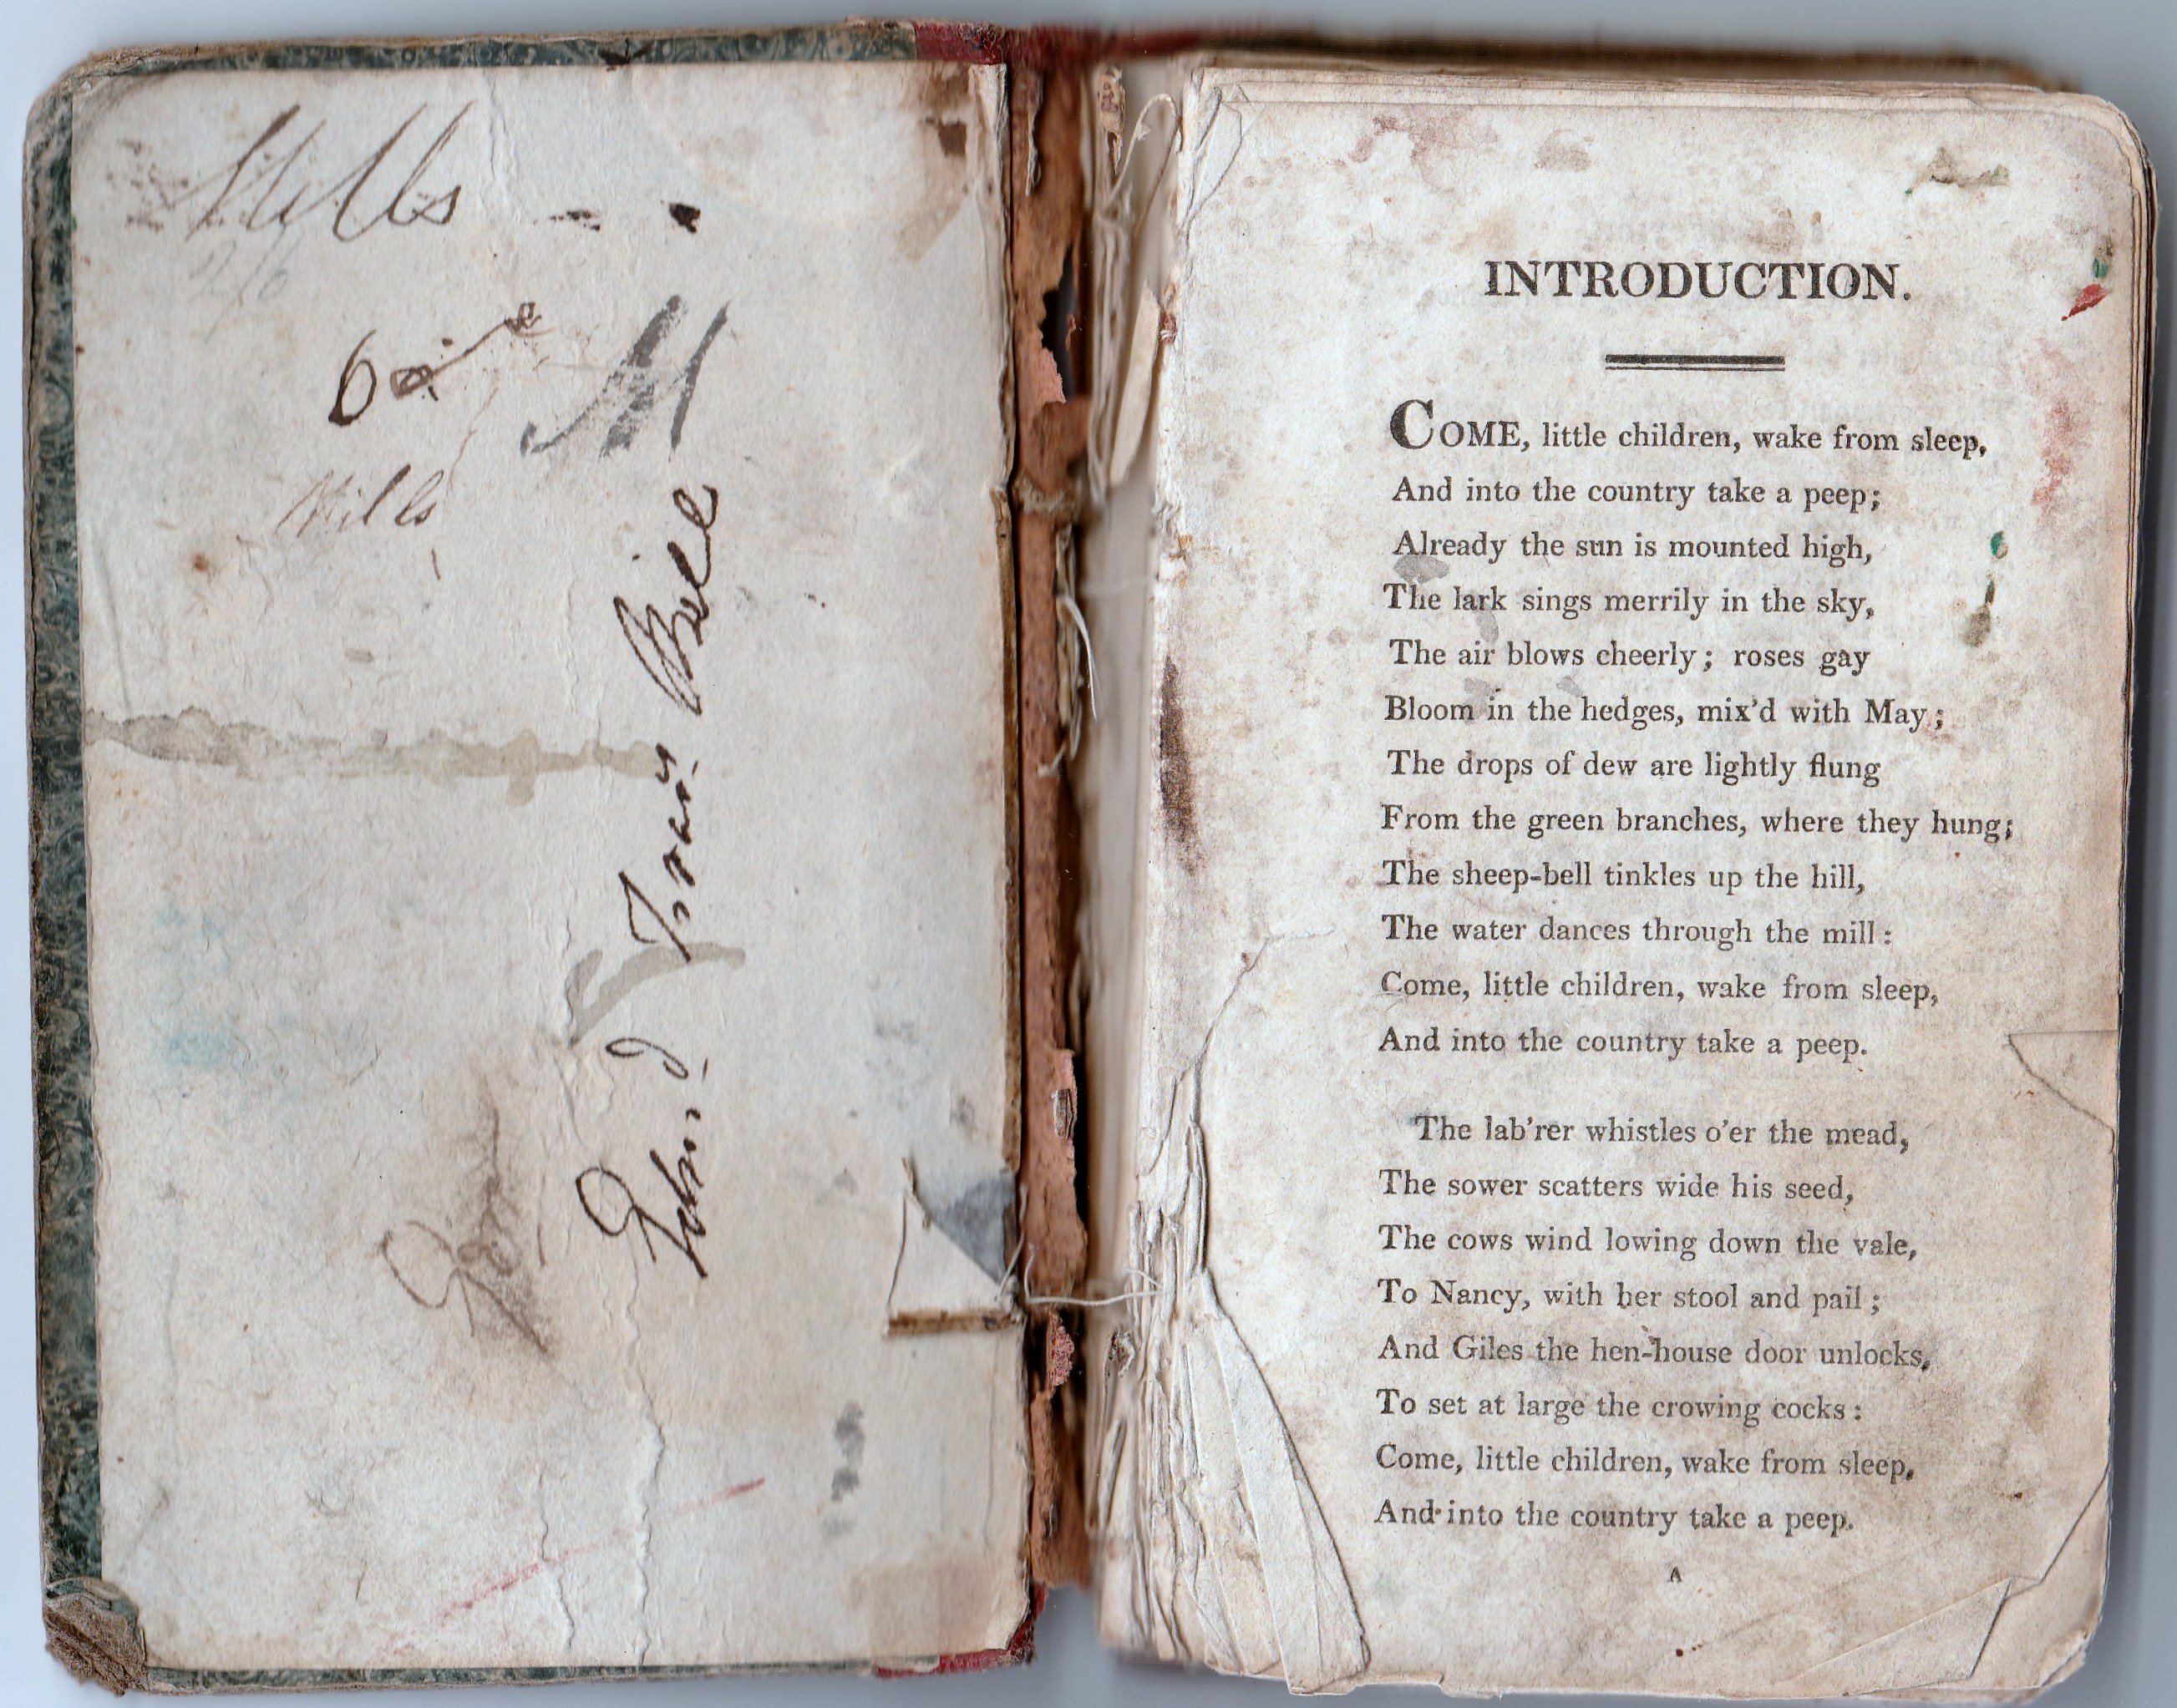 Mills
2/6
M
Mills
INTRODUCTION.
COME, little children, wake from sleep,
And into the country take a peep;
Already the sun is mounted high,
The lark sings merrily in the sky,
The air blows cheerly; roses gay
Bloom in the hedges, mix'd with May;
The drops of dew are lightly flung
From the green branches, where they hung;
The sheep-bell tinkles up the hill,
The water dances through the mill:
Come, little children, wake from sleep,
And into the country take a peep.
The lab'rer whistles o'er the mead,
The sower scatters wide his seed,
The cows wind lowing down the vale,
To Nancy, with her stool and pail;
And Giles the hen-house door unlocks,
To set at large the crowing cocks:
Come, little children, wake from sleep,
And into the country take a peep.
A